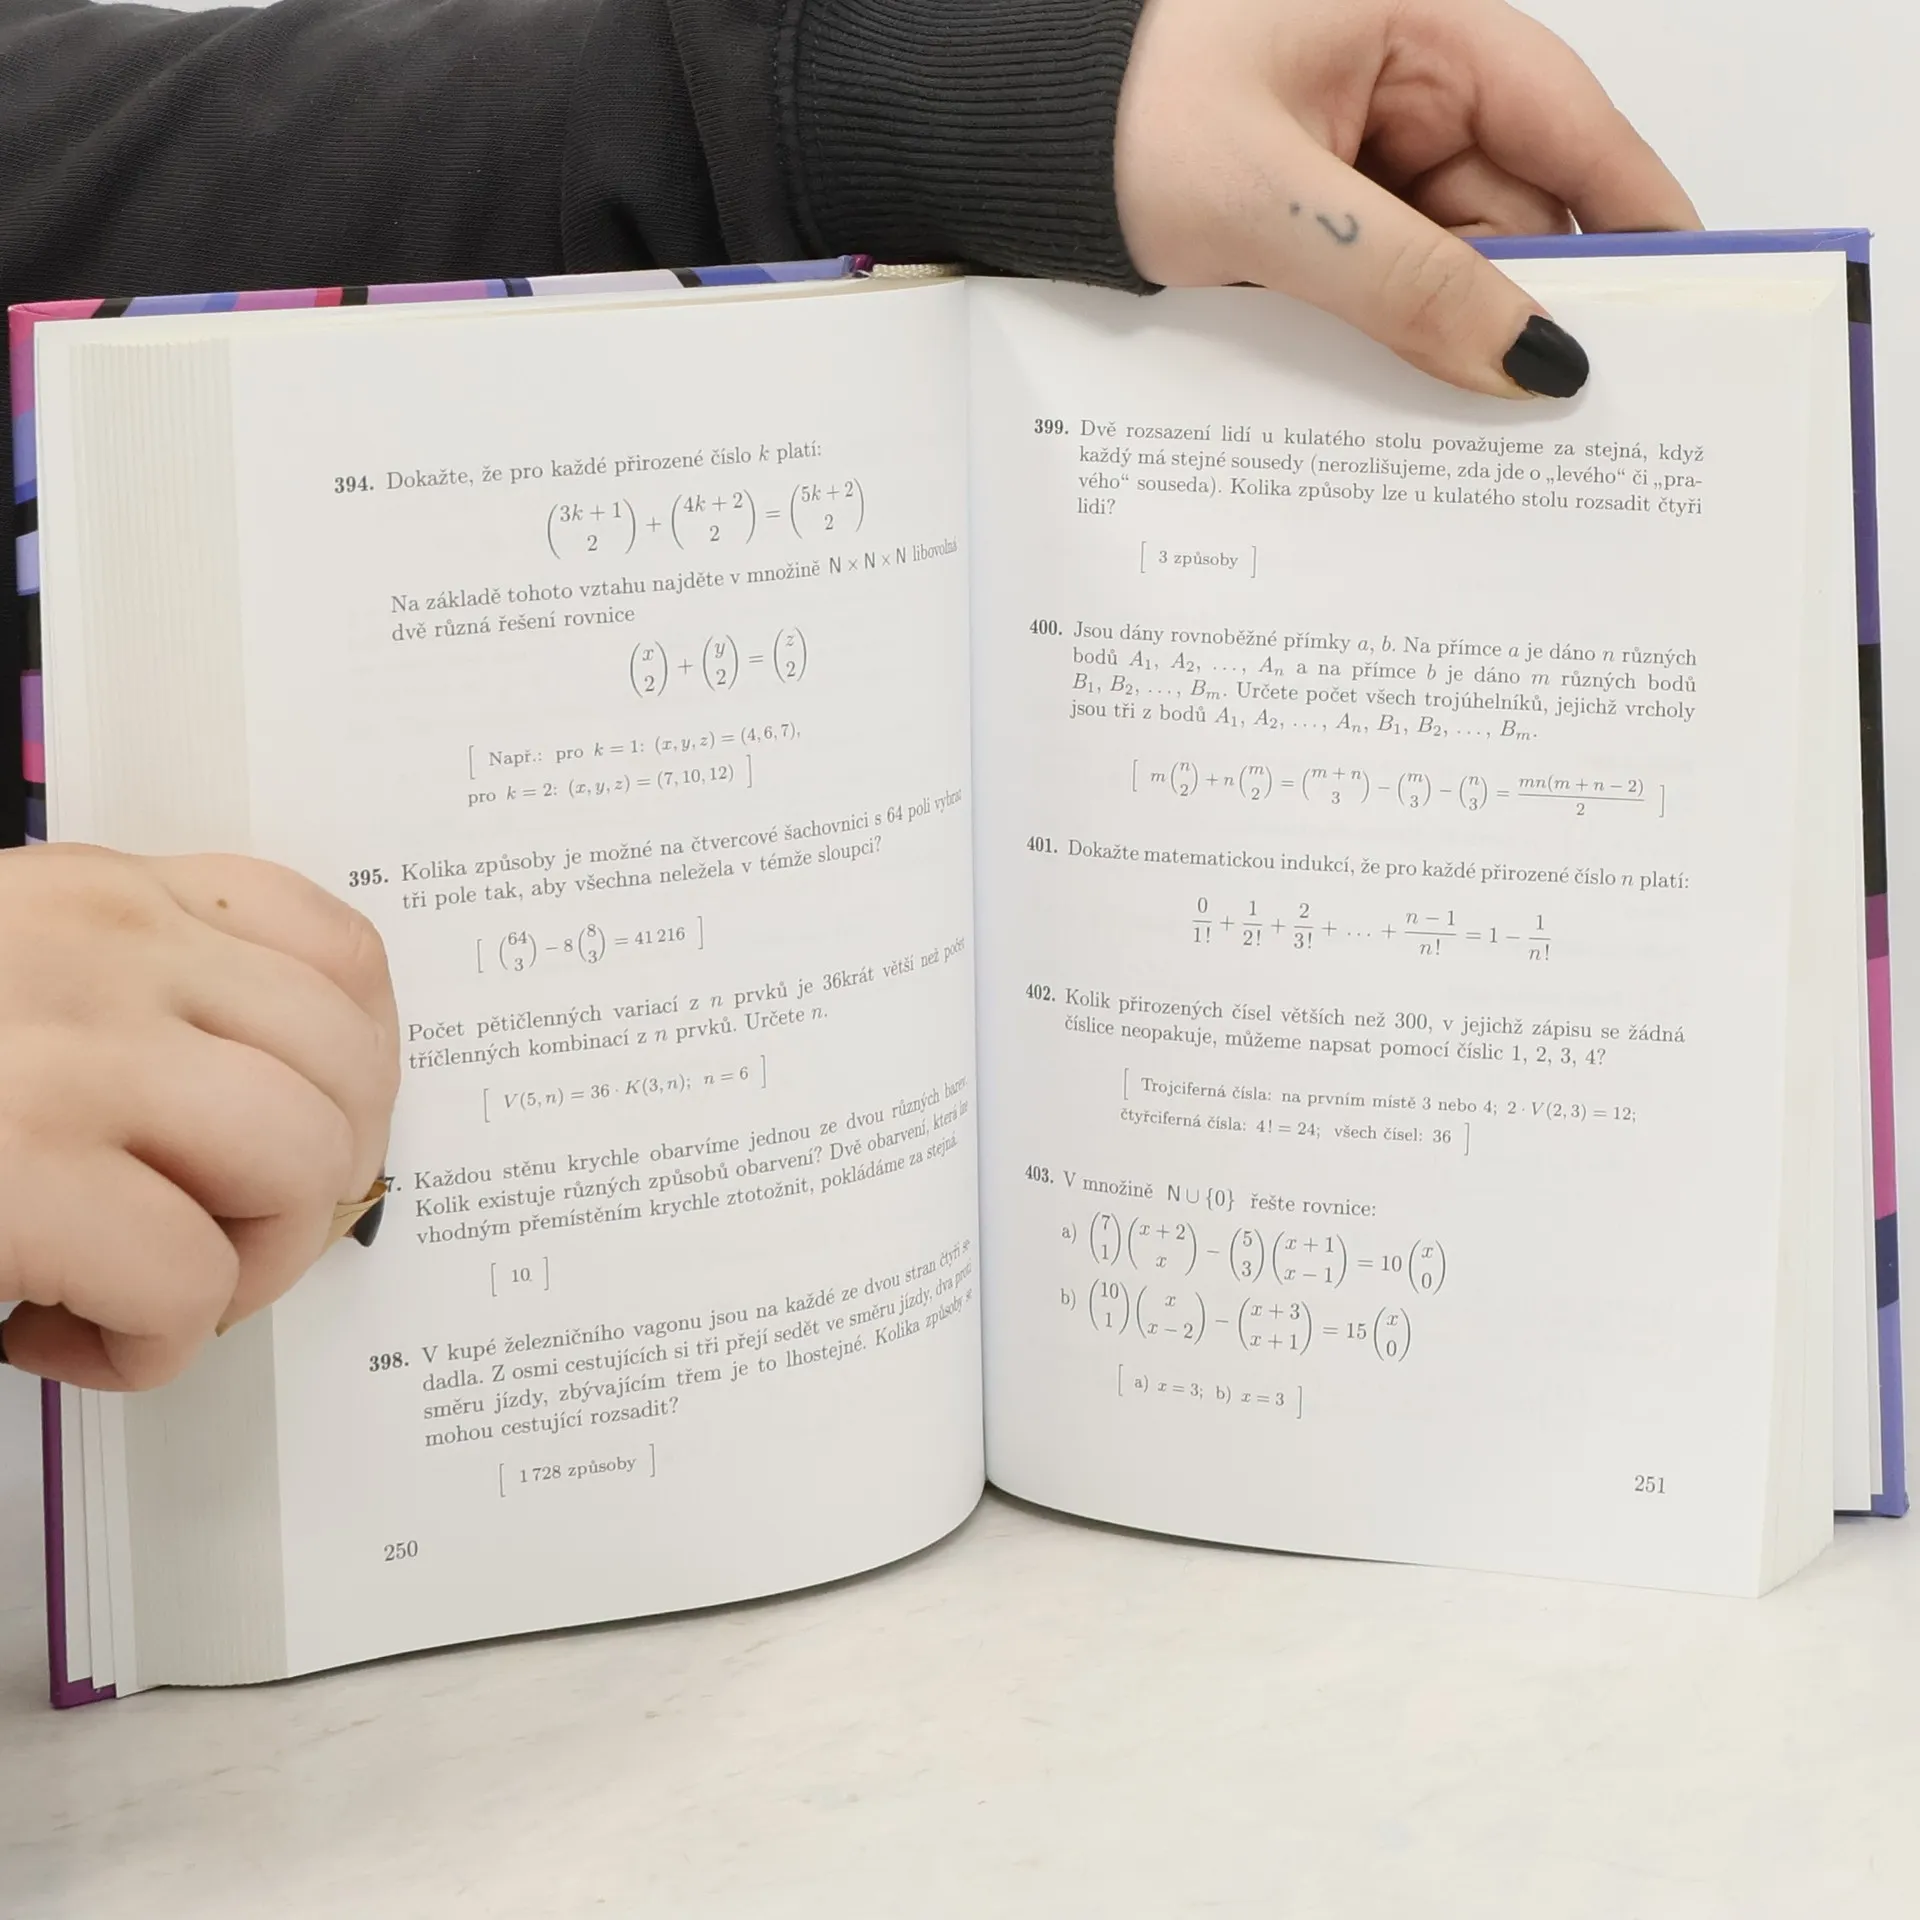 394. Dokažte, že pro každé přirozené číslo k platí:
(3k + 1 2) + (4k + 2 2) = (5k + 2 2)
Na základě tohoto vztahu najděte v množině N × N × N libovolná
dvě různá řešení rovnice
(x 2) + (y 2) = (z 2)
[ Např.: pro k = 1: (x, y, z) = (4, 6, 7),
pro k = 2: (x, y, z) = (7, 10, 12) ]
395. Kolika způsoby je možné na čtvercové šachovnici s 64 poli vybrat
tři pole tak, aby všechna neležela v témže sloupci?
[ (64 3) − 8 (8 3) = 41 216 ]
Počet pětičlenných variací z n prvků je 36krát větší než počet
tříčlenných kombinací z n prvků. Určete n.
[ V(5, n) = 36 · K(3, n); n = 6 ]
7. Každou stěnu krychle obarvíme jednou ze dvou různých barev.
Kolik existuje různých způsobů obarvení? Dvě obarvení, která lze
vhodným přemístěním krychle ztotožnit, pokládáme za stejná.
[ 10 ]
398. V kupé železničního vagonu jsou na každé ze dvou stran čtyři se-
dadla. Z osmi cestujících si tři přejí sedět ve směru jízdy, dva proti
směru jízdy, zbývajícím třem je to lhostejné. Kolika způsoby se
mohou cestující rozsadit?
[ 1 728 způsoby ]
250
399. Dvě rozsazení lidí u kulatého stolu považujeme za stejná, když
každý má stejné sousedy (nerozlišujeme, zda jde o „levého“ či „pra-
vého“ souseda). Kolika způsoby lze u kulatého stolu rozsadit čtyři
lidi?
[ 3 způsoby ]
400. Jsou dány rovnoběžné přímky a, b. Na přímce a je dáno n různých
bodů A₁, A₂, ..., Aₙ a na přímce b je dáno m různých bodů
B₁, B₂, ..., Bₘ. Určete počet všech trojúhelníků, jejichž vrcholy
jsou tři z bodů A₁, A₂, ..., Aₙ, B₁, B₂, ..., Bₘ.
[ m (n 2) + n (m 2) = (m + n 3) − (m 3) − (n 3) = mn(m + n − 2) / 2 ]
401. Dokažte matematickou indukcí, že pro každé přirozené číslo n platí:
0/1! + 1/2! + 2/3! + ... + (n − 1)/n! = 1 − 1/n!
402. Kolik přirozených čísel větších než 300, v jejichž zápisu se žádná
číslice neopakuje, můžeme napsat pomocí číslic 1, 2, 3, 4?
[ Trojciferná čísla: na prvním místě 3 nebo 4; 2 · V(2, 3) = 12;
čtyřciferná čísla: 4! = 24; všech čísel: 36 ]
403. V množině N ∪ {0} řešte rovnice:
a) (7 1) (x + 2 x) − (5 3) (x + 1 x − 1) = 10 (x 0)
b) (10 1) (x x − 2) − (x + 3 x + 1) = 15 (x 0)
[ a) x = 3; b) x = 3 ]
251